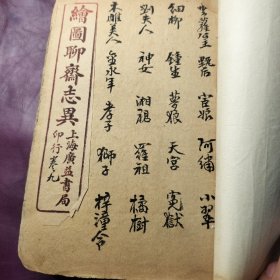 雲蘿公主 甄后 宦娘 阿繡 小翠
細柳 鐘生 夢狼 天宮 冤獄
劉夫人 神女 湘裙 羅祖 橘樹
木雕美人 金永年 孝子 獅子 梓潼令
繪圖聊齋志異
上海廣益書局
印行 卷九